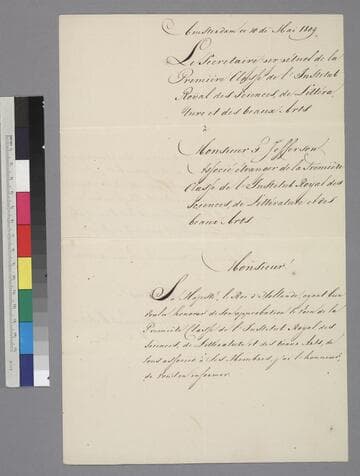 Amsterdam ce 10 de Mai 1809.
Le Secretaire perpétuel de la
Première Classe de l'Institut
Royal des Sciences, de Littéra
ture et des beaux Arts
à
Monsieur T. Jefferson
Associé étranger de la Première
Classe de l'Institut Royal des
Sciences, de Littérature et des
beaux Arts
Monsieur!
Sa Majesté, le Roi d'Hollande, ayant bien
voulu honorer de son approbation le voeu de la
Première Classe de l'Institut Royal des
Sciences, de Littérature et des beaux Arts, de
vous associer à ses Membres, j'ai l'honneur,
de vous en informer.